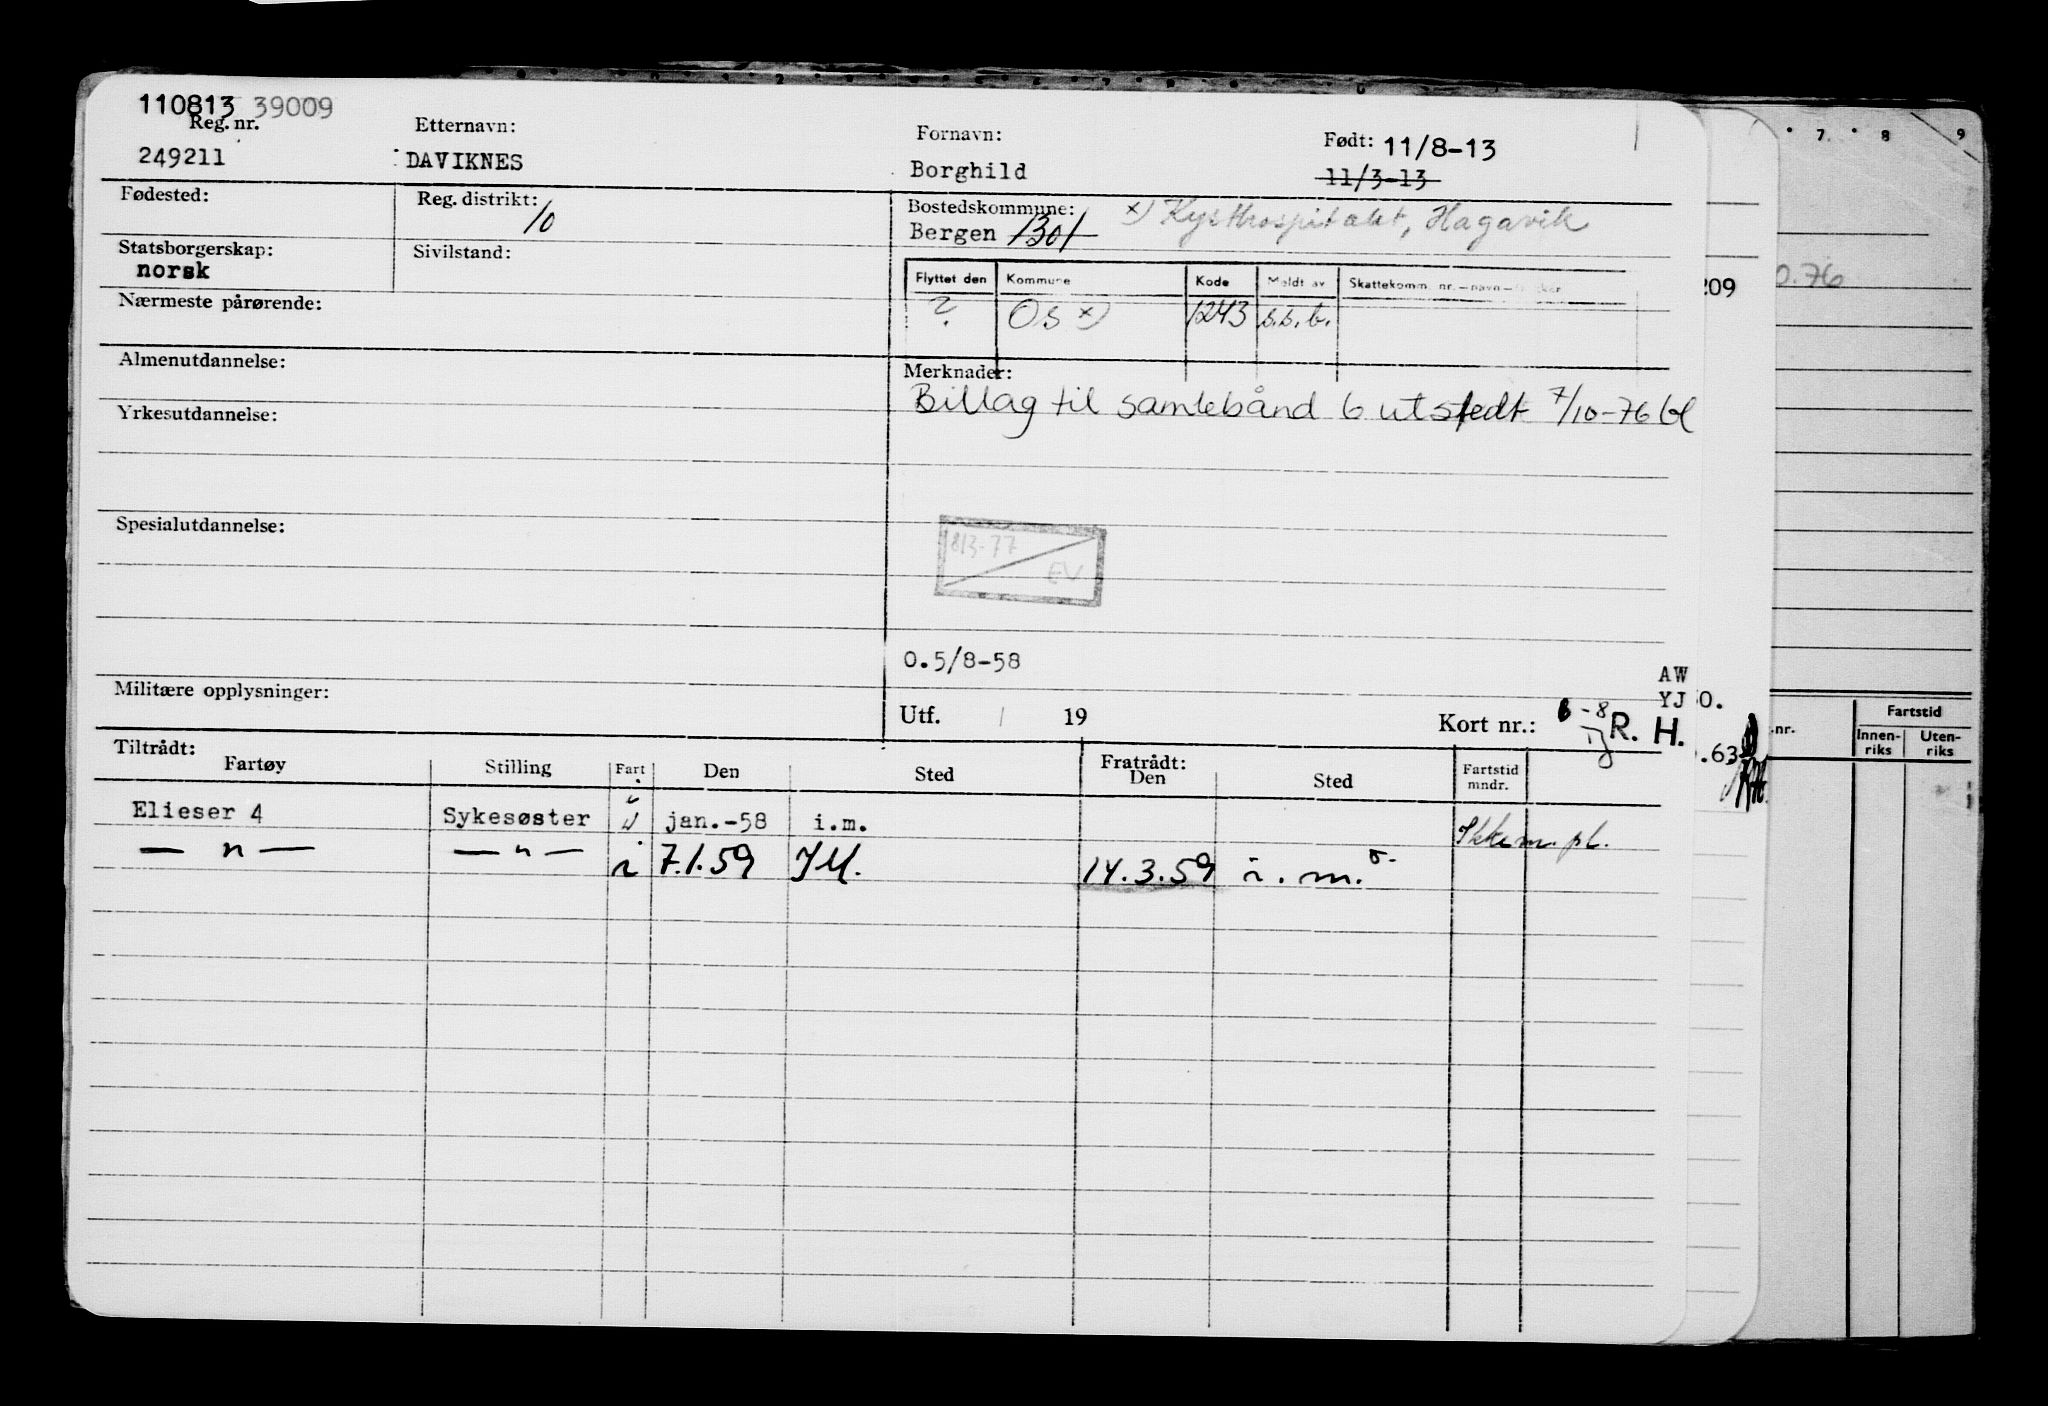 110813 39009
Reg. nr. Etternavn: Fornavn: Født: 11/8-13
249211 DAVIKNES Borghild 11/3-13
Fødested: Reg. distrikt: 10 Bostedskommune: x) Kysthospitalet, Hagavik
Bergen 1301
Statsborgerskap: Sivilstand:
norsk
Flyttet den Kommune Kode Meldt av Skattekomm. nr. — navn —
? Os x) 1243 s.s.b.
Nærmeste pårørende:
Almenutdannelse: Merknader:
Billag til samlebånd 6 utstedt 7/10-76 bl
Yrkesutdannelse:
Spesialutdannelse:
8/3-77
EV
0.5/8-58
AW
Militære opplysninger: YJ
Utf. / 19 Kort nr.: R. H.
Tiltrådt: Fratrådt:
Fartøy Stilling Fart Den Sted Den Sted Fartstid mndr.
Elieser 4 Sykesøster jan.-58 i.m. Ikke m. pl.
— " — — " — i 7.1.59 IM. 14.3.59 i.m.
209
0.
.63
7 8 9
0.76
.nr. Fartstid
Innen-riks Uten-riks